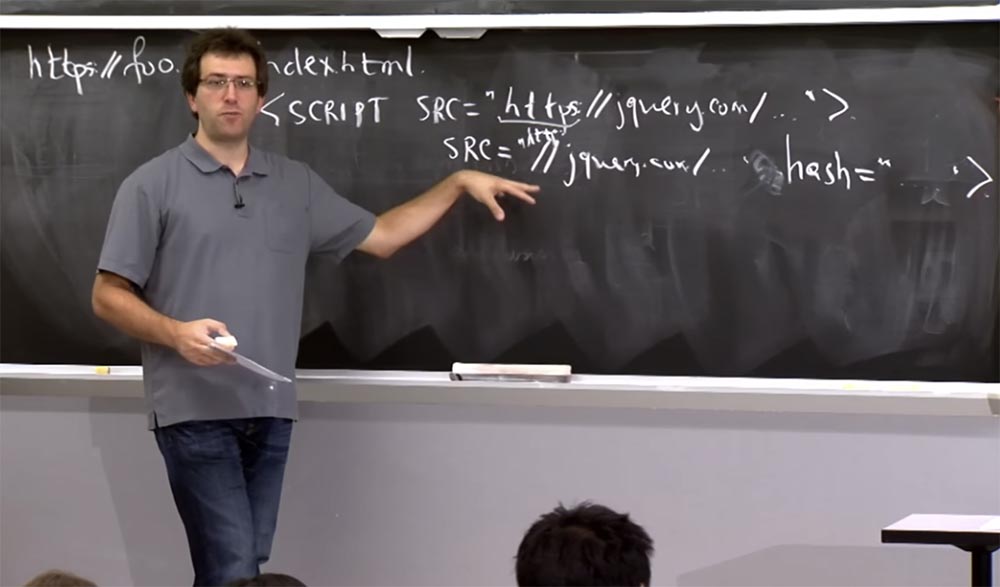 https://foo. ndex.html.
<SCRIPT SRC="https://jquery.com/..."> 
"http:
SRC="//jquery.com/.. " hash=" ..... ">